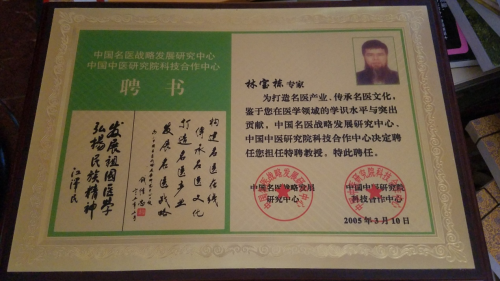 中国名医战略发展研究中心
中国中医研究院科技合作中心
聘书
发展祖国医学
弘扬民族精神
江泽民
构建名医在线
传承名医文化
打造名医产业
发展名医战略
林宝栋 专家
为打造名医产业、传承名医文化，
鉴于您在医学领域的学识水平与突出
贡献，中国名医战略发展研究中心、
中国中医研究院科技合作中心决定聘
任您担任特聘教授。特此聘任。
中国名医战略发展
研究中心
中国中医研究院
科技合作中心
2005年3月10日